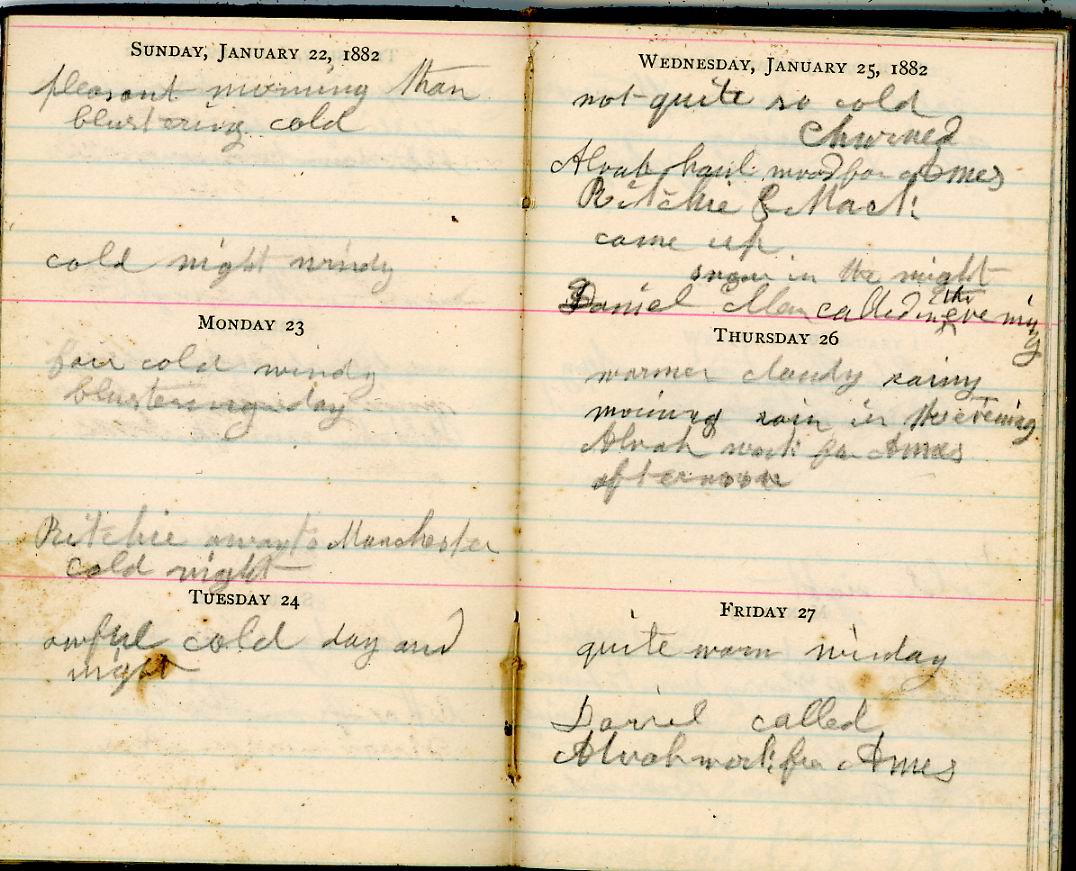 SUNDAY, JANUARY 22, 1882
pleasant morning than
blustering cold
cold night windy
MONDAY 23
fair cold windy
blustering day
Ritchie away to Manchester
cold night
TUESDAY 24
awful cold day and
night
WEDNESDAY, JANUARY 25, 1882
not quite so cold
Churned
Alvah haul wood for Ames
Ritchie & Mark
came up
snow in the night
Daniel called in the evening
THURSDAY 26
warmer cloudy rainy
morning rain in the evening
Alvah work for Ames
afternoon
FRIDAY 27
quite warm winday
Daniel called
Alvah work for Ames